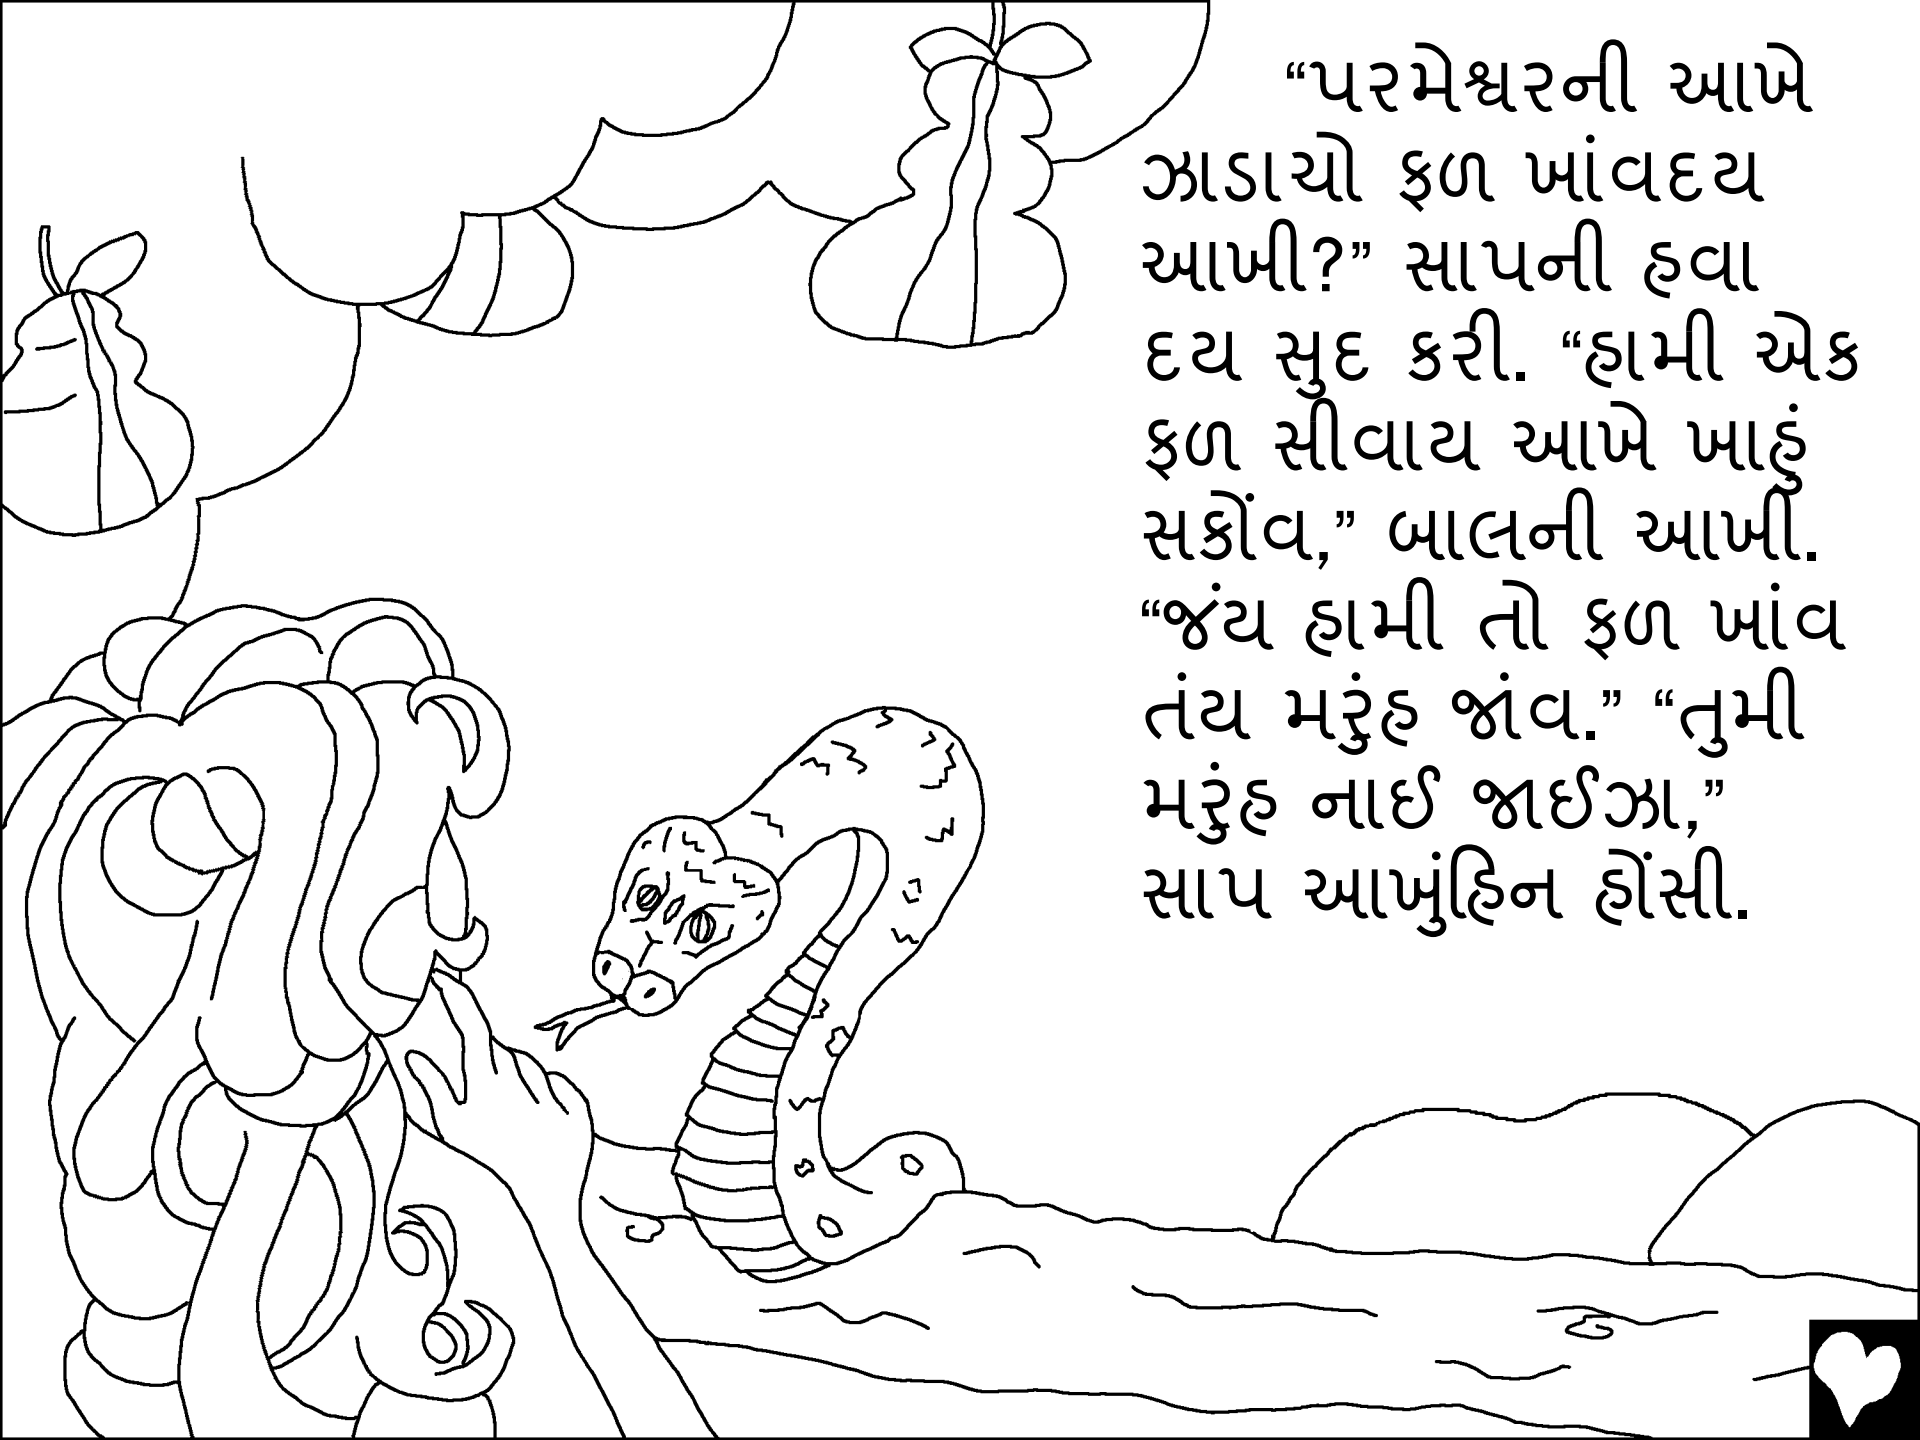 “પરમેશ્વરની આખે
ઝાડાચો ફળ ખાંવદય
આખી?” સાપની હવા
દય સુદ કરી. “હામી એક
ફળ સીવાય આખે ખાહું
સકોંવ,” બાલની આખી.
“જંય હામી તો ફળ ખાંવ
તંય મરુંહ જાંવ.” “તુમી
મરુંહ નાઈ જાઈઝા,”
સાપ આખુંહિન હોંસી.